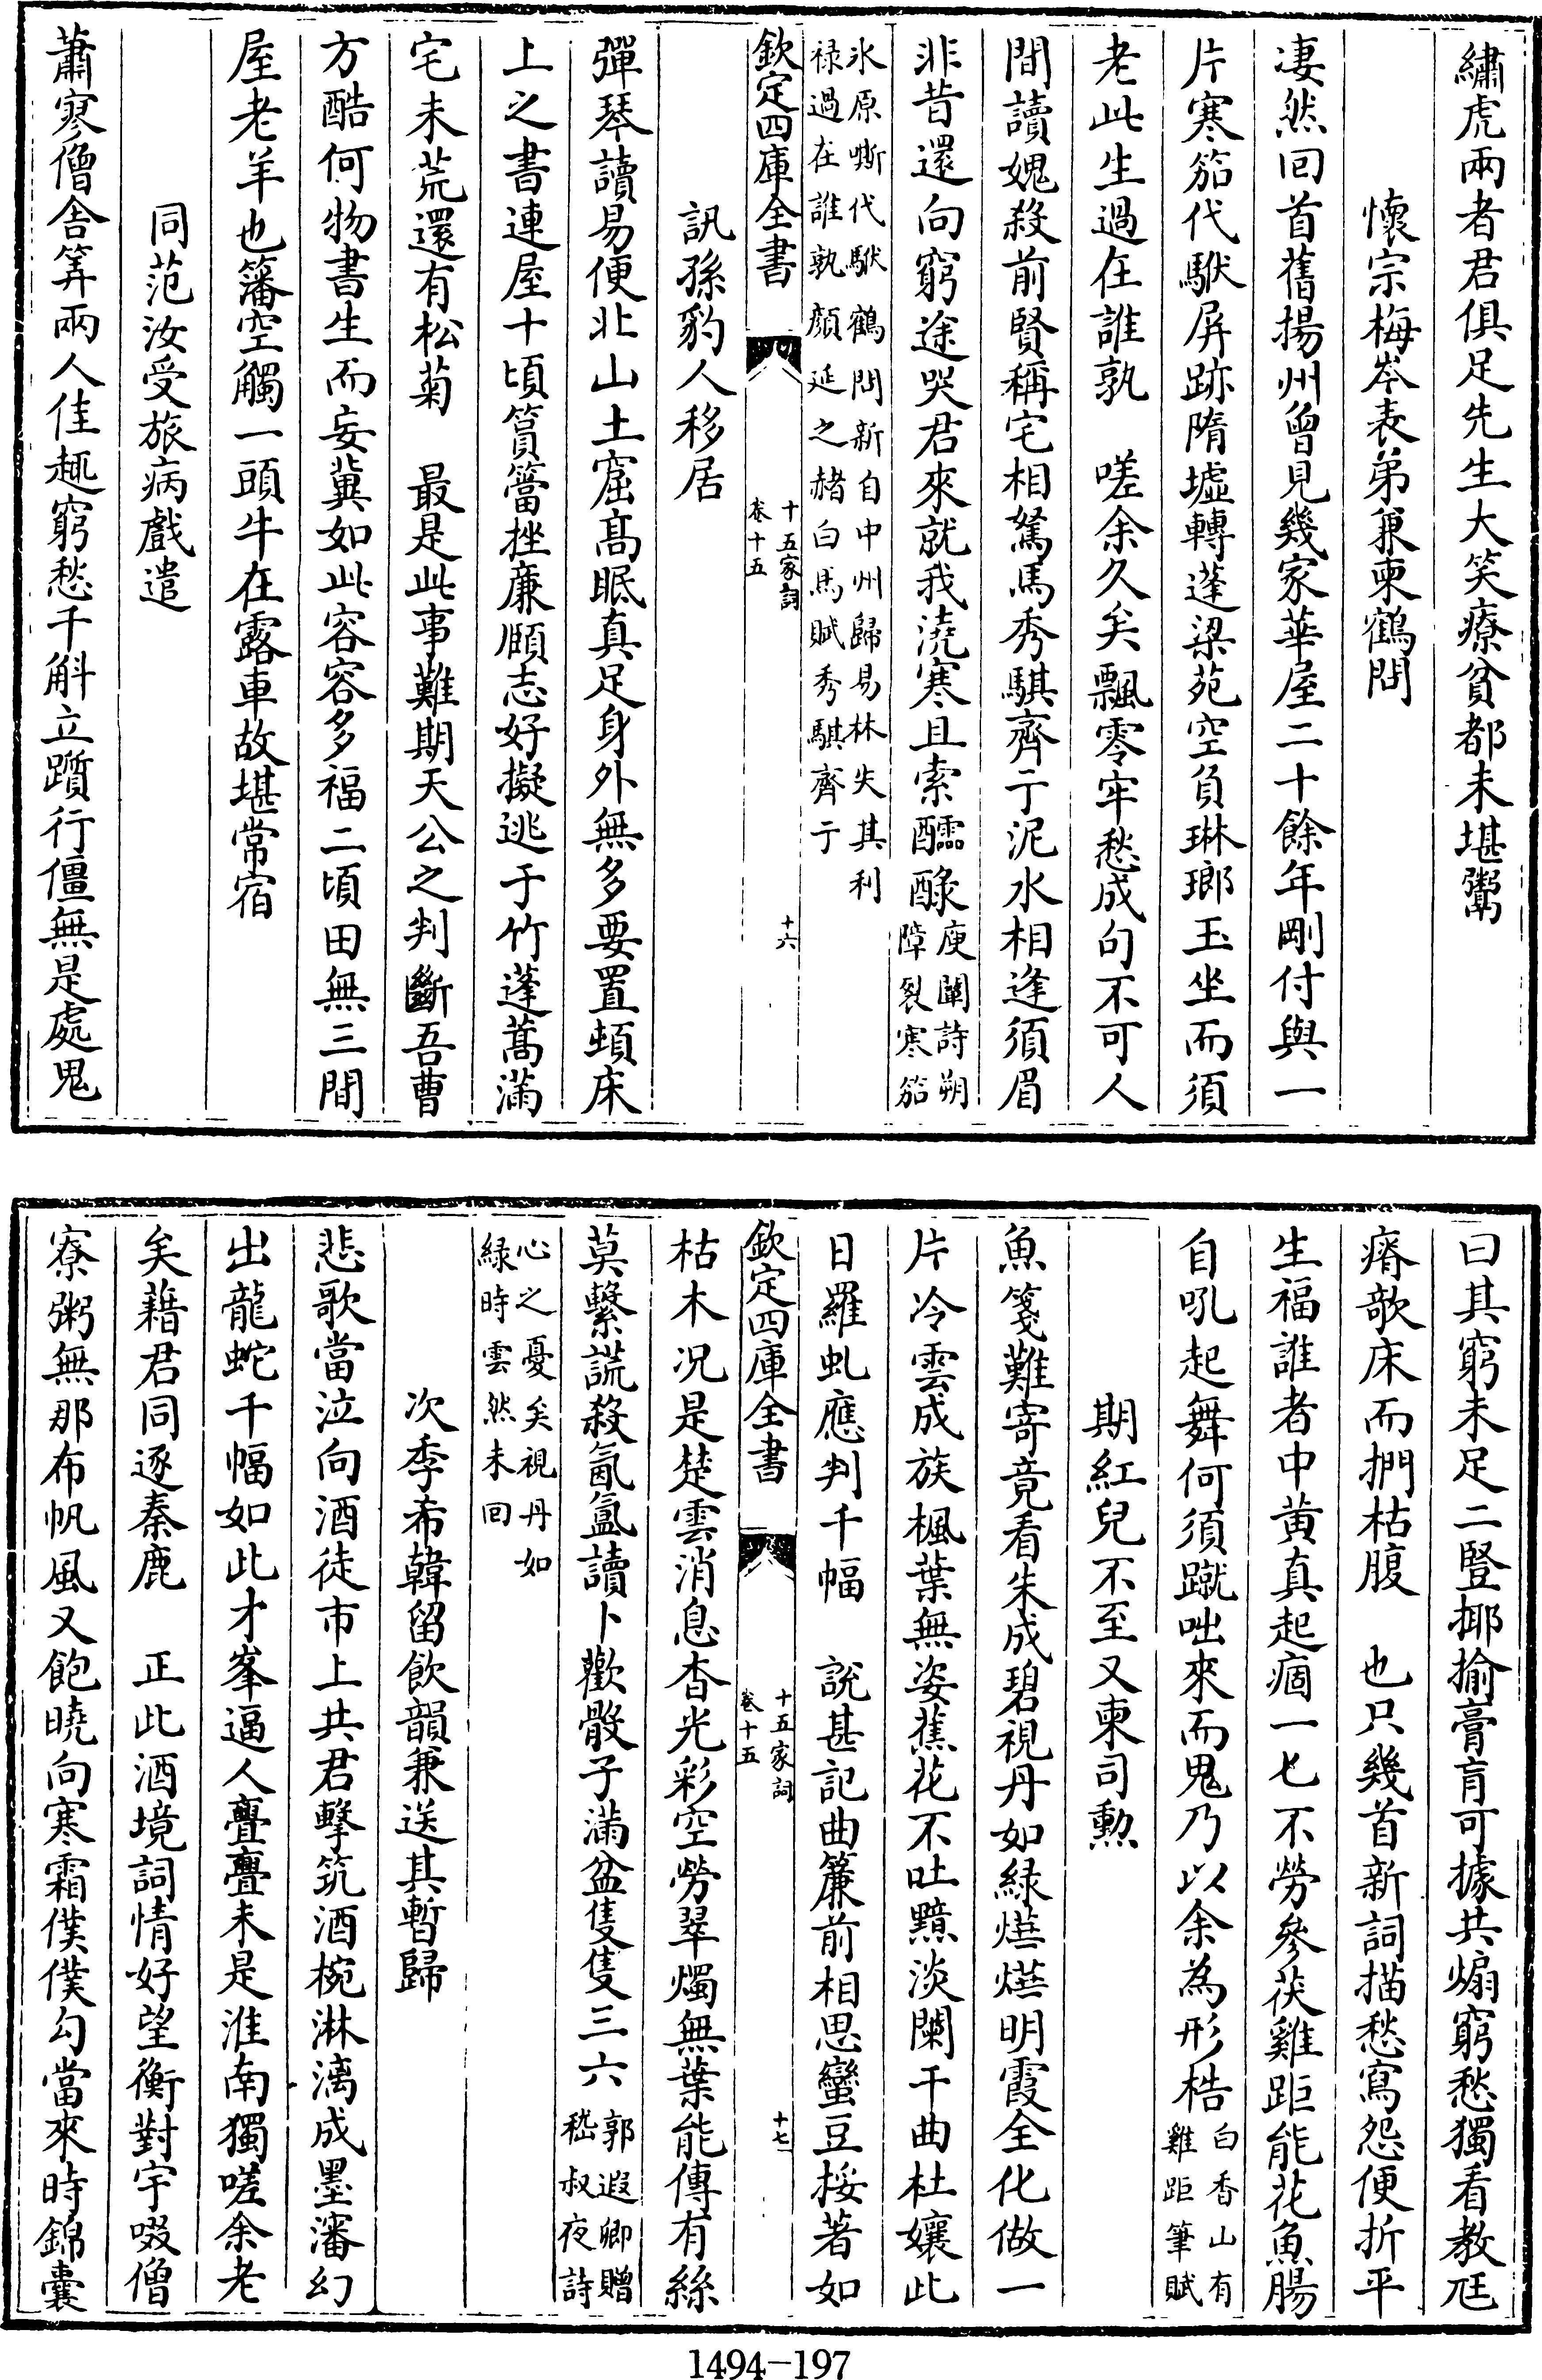 繡虎兩者君俱足先生大笑療貧都未堪鬻
懷宗梅岑表弟兼柬鶴問
凄然回首舊揚州曾見幾家華屋二十餘年剛付與一
片寒笳代駄屏跡隋墟轉蓬梁苑空負琳瑯玉坐而須
老此生過在誰孰　嗟余久矣飄零牢愁成句不可人
間讀媿殺前賢稱宅相駑馬秀騏齊于泥水相逢須眉
非昔還向窮途哭君來就我澆寒且索醽醁庾闡詩朔
障裂寒笳
氷原嘶代駄鶴問新自中州歸易林失其利
禄過在誰孰顔延之赭白馬賦秀騏齊于
欽定四庫全書
十五家詞
卷十五
十六
訊孫豹人移居
彈琴讀易便北山土窟髙眠真足身外無多要置頓床
上之書連屋十頃篔簹挫廉頋志好擬逃于竹蓬蒿滿
宅未荒還有松菊　最是此事難期天公之判斷吾曹
方酷何物書生而妄冀如此容容多福二頃田無三間
屋老羊也籓空觸一頭牛在露車故堪常宿
同范汝受旅病戲遣
蕭寥僧舍筭兩人佳趣窮愁千斛立躓行僵無是處鬼
曰其窮未足二豎揶揄膏肓可據共煽窮愁獨看教尫
瘠欹床而捫枯腹　也只幾首新詞描愁寫怨便折平
生福誰者中黄真起痼一七不勞參茯雞距能花魚腸
自吼起舞何須蹴咄來而鬼乃以余為形梏白香山有
雞距筆賦
期紅兒不至又柬司勲
魚箋難寄竟看朱成碧視丹如緑爇爇明霞全化做一
片冷雲成族楓葉無姿蕉花不吐黯淡闌干曲杜孃此
日羅虬應判千幅　說甚記曲簾前相思蠻豆挼著如
欽定四庫全書
十五家詞
卷十五
十七
枯木况是楚雲消息杳光彩空勞翠燭無葉能傳有絲
莫繫謊殺氤氳讀卜歡骰子滿盆隻隻三六郭遐卿贈
嵇叔夜詩
心之憂矣視丹如
緑時雲然未回
次季希韓留飲韻兼送其暫歸
悲歌當泣向酒徒市上共君擊筑酒椀淋漓成墨瀋幻
出龍蛇千幅如此才峯逼人亹亹未是淮南獨嗟余老
矣藉君同逐秦鹿　正此酒境詞情好望衡對宇啜僧
寮粥無那布帆風又飽曉向寒霜僕僕勾當來時錦囊
1494-197